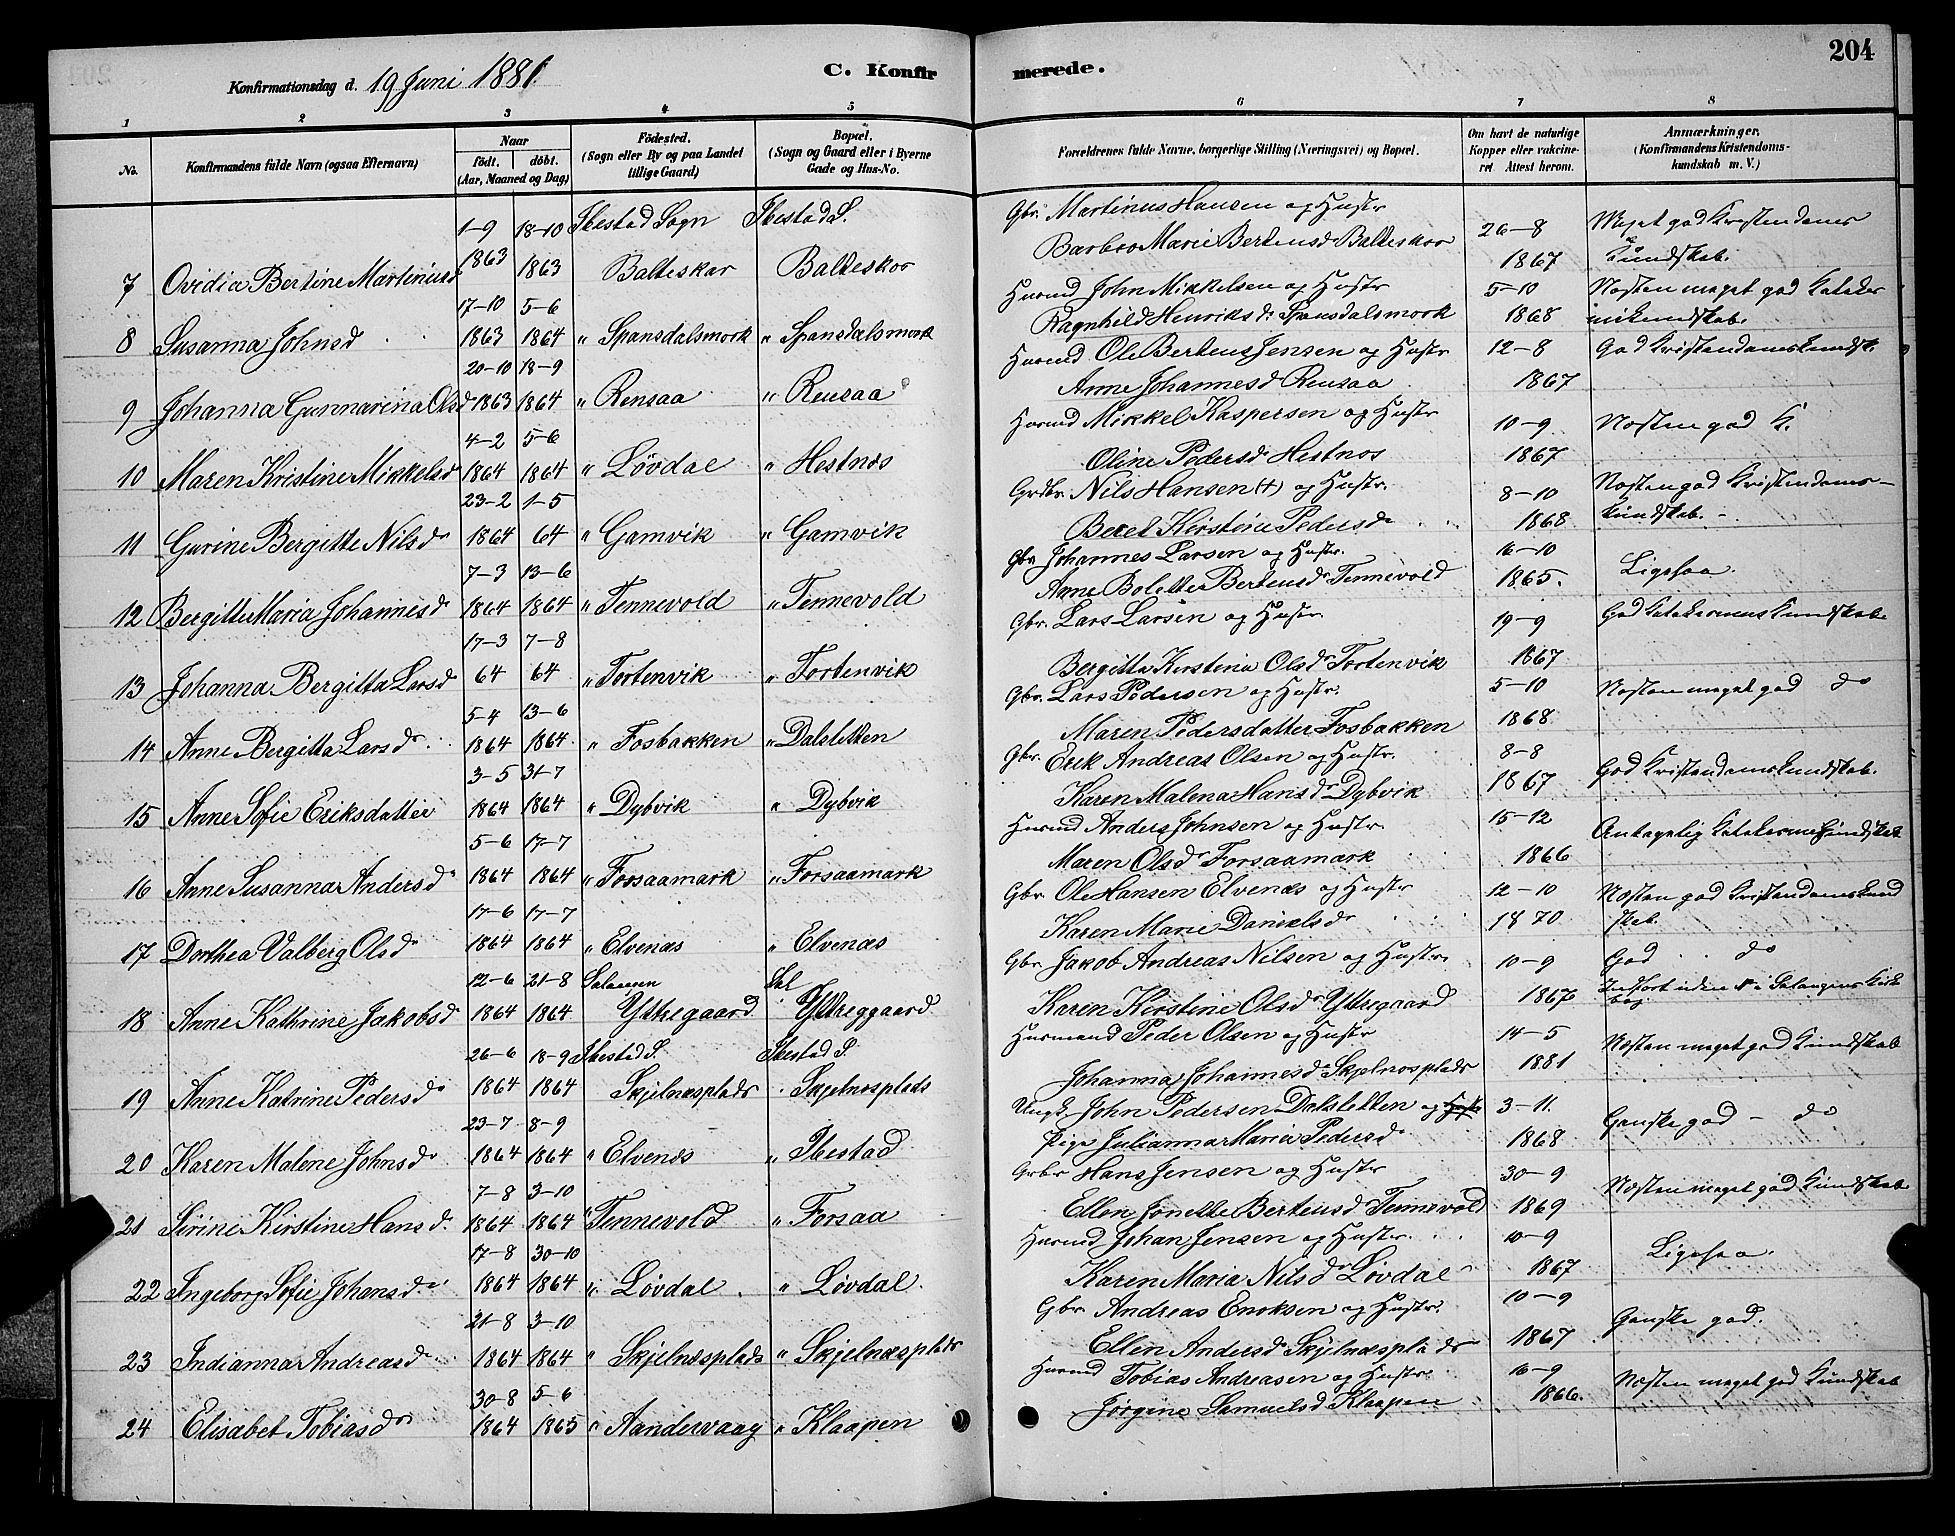 204
Konfirmationsdag d. 19 Juni 1881.
C. Konfirmerede.
1 2 3 4 5 6 7 8
No.
Konfirmandens fulde Navn (ogsaa Efternavn)
Naar
født. døbt.
(Aar, Maaned og Dag)
Fødested.
(Sogn eller By og paa Landet
tillige Gaard)
Bopæl.
(Sogn og Gaard eller i Byerne
Gade og Hus-No.
Forældrenes fulde Navne, borgerlige Stilling (Næringsvei) og Bopæl.
Om havt de naturlige
Kopper eller vakcine-
ret Attest herom.
Anmærkninger.
(Konfirmandens Kristendoms-
kundskab m. V.)
1-9 18-10 Ibestad Sogn Ibestad S. Gbr. Martinus Hansen og Hustr 26-8 Meget god Kristendoms
7 Ovidia Bertine Martinusd 1863 1863 Balteskar Balteskar Barbro Marie Bertensd Balteskar 1867 Kundskab.
17-10 5-6 Husmd John Mikkelsen og Hustr 5-10 Næsten meget god Katekis
8 Susanna Johnsd 1863 1864 " Spansdalsmork " Spansdalsmork Ragnhild Henriksd. Spansdalsmork 1868 muskundskab.
20-10 18-9 Husmd Ole Berteus Jensen og Hustr 12-8 God Kristendomskundsk.
9 Johanna Gunnarina Olsd 1863 1864 " Rensaa " Rensaa Anne Johannesd Rensaa 1867
4-2 5-6 Husmd Mikkel Kaspersen og Hustr 10-9 Næsten god K.
10 Maren Kristine Mikkelsd 1864 1864 " Løvdal " Hestnæs Oline Pedersd Hestnæs 1867
23-2 1-5 Grdbr. Nils Hansen (+) og Hustr. 8-10 Næsten god Kristendoms-
11 Gurine Bergitte Nilsd. 1864 64 " Gamvik " Gamvik Beret Kirstine Pedersd 1868 kundskab.
7-3 13-6 Gbr Johannes Larsen og Hustr. 16-10 Ligesaa.
12 Bergitte Maria Johannesd. 1864 1864 " Tennevold " Tennevold Anne Bolette Bertensd. Tennevold 1865.
17-3 7-8 Gbr. Lars Larsen og Hustr. 19-9 God Katekismuskundskab
13 Johanna Bergitta Larsd 64 64 " Tortenvik " Tortenvik Bergitta Kirstina Olsd. Tortenvik 1867
5-4 13-6 Gbr. Lars Pedersen og Hustr. 5-10 Næsten meget god do
14 Anne Bergitta Larsd. 1864 1864 " Fosbakken " Dalsletten Maren Pedersdatter Fosbakken 1868.
3-5 31-7 Gbr. Erik Andreas Olsen og Hustr. 8-8 God Kristendomskundskab.
15 Anne Sofie Eriksdatter 1864 1864 " Dybvik " Dybvik Karen Malena Hansd. Dybvik 1867
5-6 17-7 Husmd Anders Johnsen og Hustr. 15-12 Antagelig Katekismuskundskab
16 Anne Susanna Andersd. 1864 1864 " Forsaamark " Forsaamark Maren Olsd. Forsaamark 1866
17-6 17-7 Gbr. Ole Hansen Elvenæs og Hustr 12-10 Næsten god Kristendomskund
17 Dorthea Valberg Olsd. 1864 1864 " Elvenæs " Elvenæs Karen Marie Danielsd. 1870 skab.
12-6 21-8 Salangen Sal Gbr Jakob Andreas Nilsen og Hustr. 10-9 God do
18 Anne Kathrine Jakobsd 1864 1864 Yttregaard Yttreggaard Karen Kirstine Olsd. Yttregaard 1867 Indført uden № i Salangens Kirkebog
26-6 18-9 Ibestad S. Ibestad S. Husmand Peder Olsen og Hustr 14-5 Næsten meget god Kundskab
19 Anne Katrine Pedersd. 1864 1864 Skjelnæsplads Skjelnæsplads Johanna Johannesd. Skjelnæsplads 1881
23-7 8-9 Ungk. John Pedersen Dalsletten og Hustr 3-11. Ganske god - do
20 Karen Malene Johnsd. 1864 1864 " Elvenæs " Ibestad Pige Julianna Maria Pedersd. 1868
7-8 3-10 Grbr Hans Jensen og Hustr 30-9 Næsten meget god Kundskab
21 Sirine Kirstine Hansd. 1864 1864 " Tennevold " Forsaa Ellen Jonette Bertensd Tennevold 1869
17-8 30-10 Husmd Johan Jensen og Hustr. 10-9 Ligesaa.
22 Ingeborg Sofie Johansd. 1864 1864 " Løvdal " Løvdal Karen Maria Nilsd. Løvdal 1867
21-8 3-10 Gbr. Andreas Enoksen og Hustr. 10-9 Ganske god.
23 Indianna Andreasd. 1864 1864 " Skjelnæsplads " Skjelnæsplads Ellen Andersd Skjelnæsplads 1867
30-8 5-6 Husmd Tobias Andreasen og Hustr. 16-9 Næsten meget god Kundskab
24 Elisabet Tobiasd. 1864 1865 " Aandervaag " Klaapen Jørgine Samuelsd Klaapen 1866.